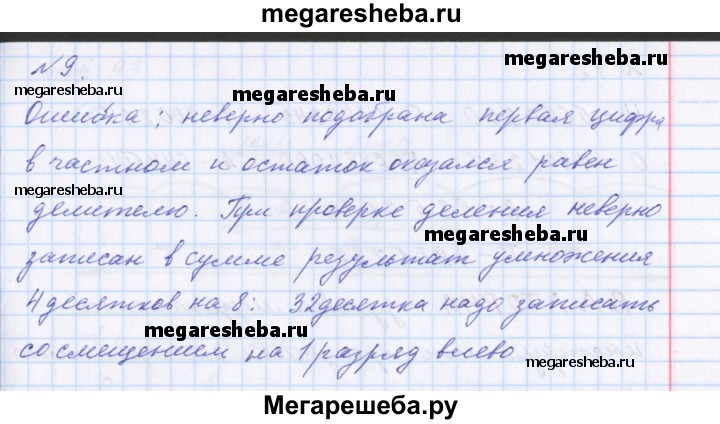 megaresheba.ru
N 9.
megaresheba.ru
megaresheba.ru
megaresheba.ru
Ошибка: неверно подобрана первая цифра
в частном и остаток оказался равен
megaresheba.ru
делителю. При проверке деления неверно
megaresheba.ru
записан в сумме результат умножения
4 десятков на 8: 32 десятка надо записать
megaresheba.ru
со смещением на 1 разряд влево
megaresheba.ru
Мегарешеба.ру